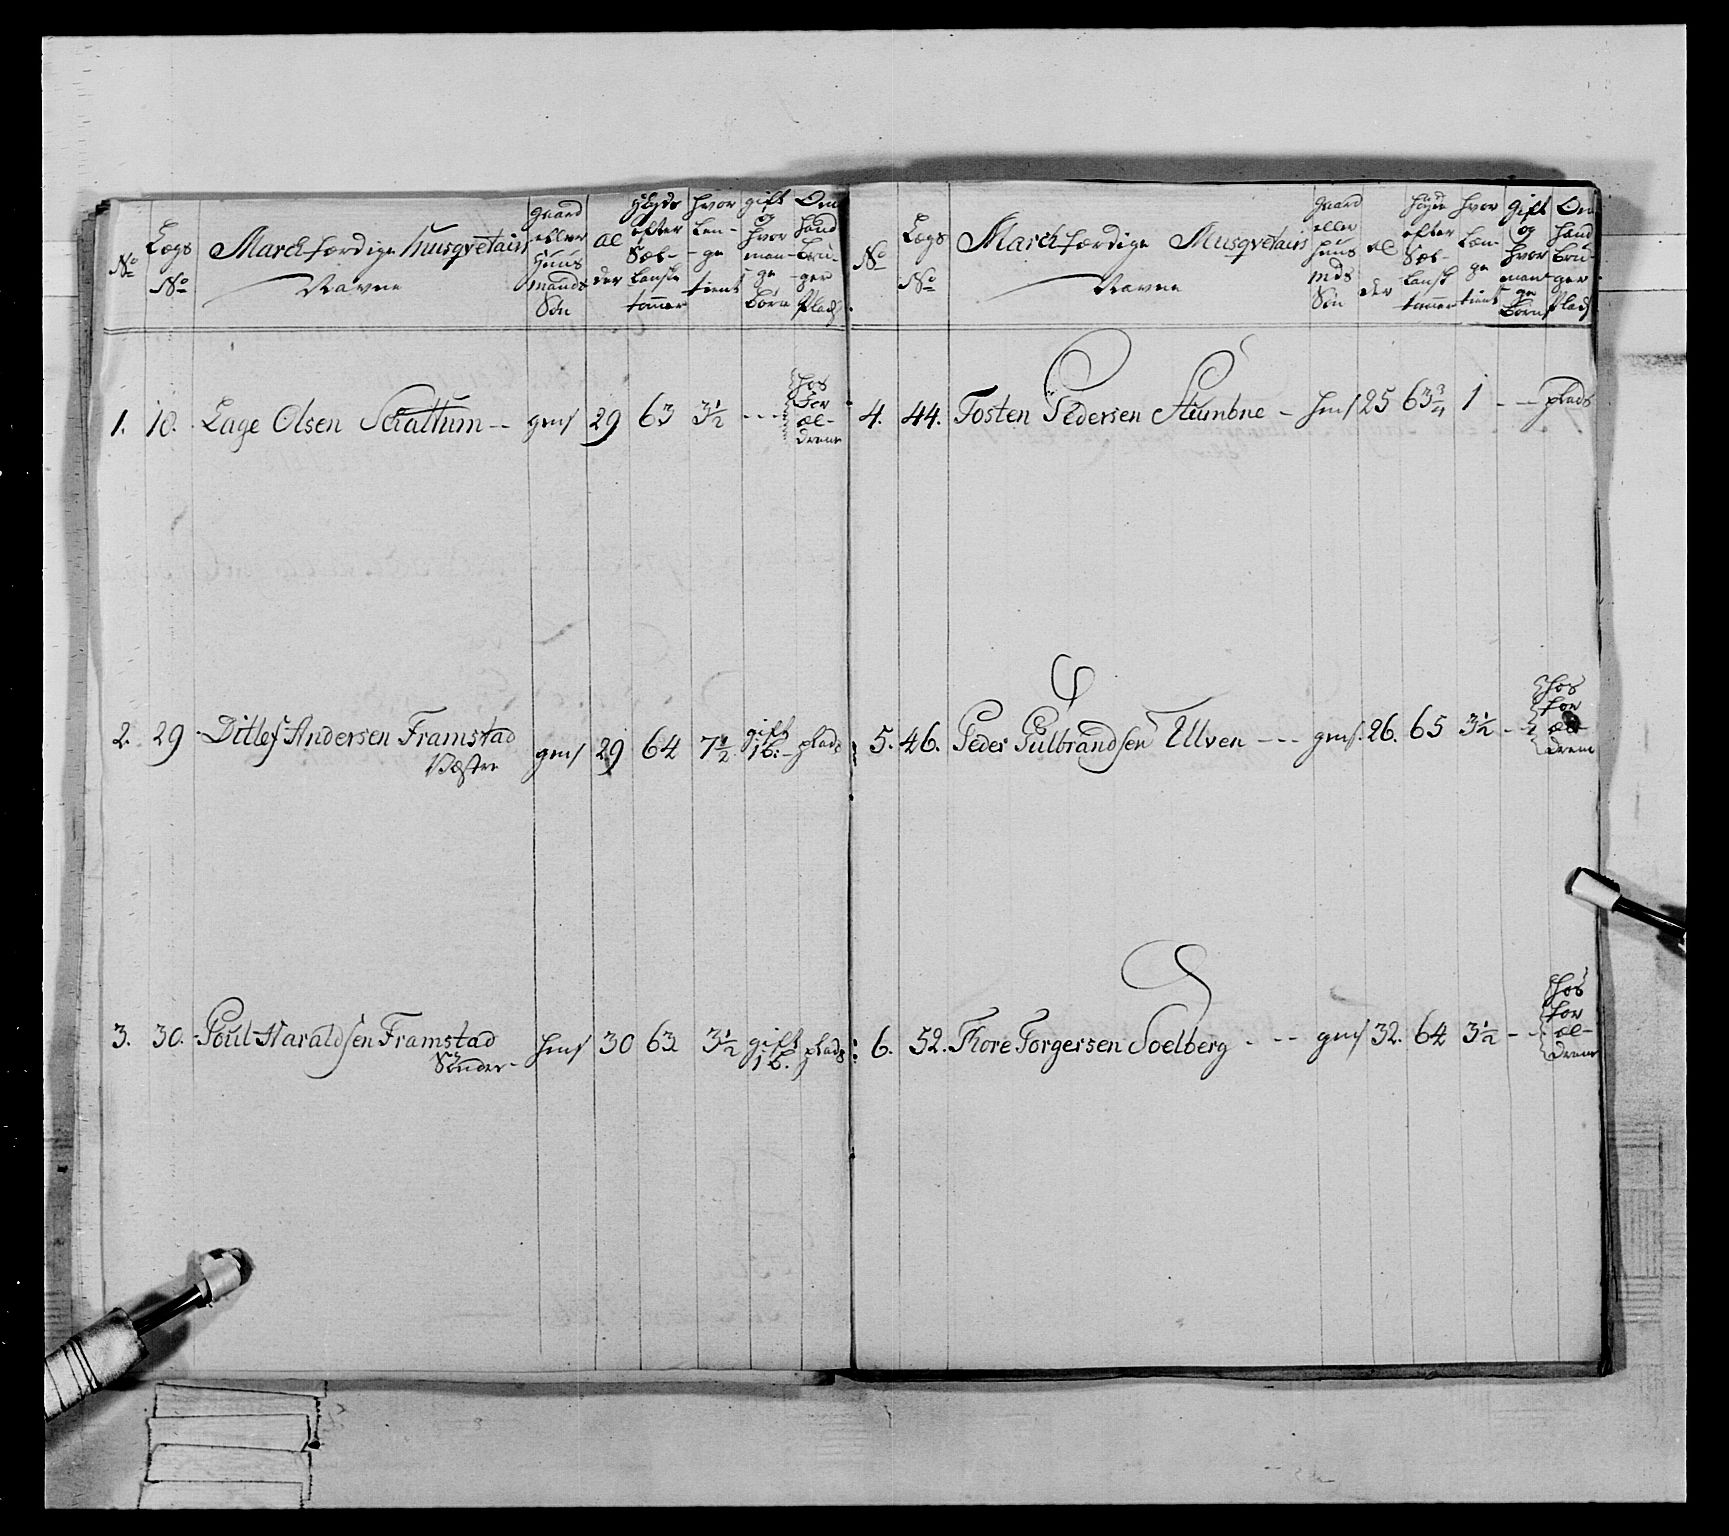 No
Lægs No
Marchfærdige Musqvetairs Navne
gaard eller Huus mands Søn
Al der
Høyde efter Sæl- landske tommer
hvor Len- ge tient
gift og hvor man- ge Børn
Om hand bru- ger Plads
1. 18. Lage Olsen Schattum -- gms 29 63 3½ --- hos For æl- drene
2. 29. Ditlef Andersen Framstad gms 29 64 7½ gift 1 b. plads
Væstre
3. 30. Poul Haraldsen Framstad hms 30 63 3½ gift 1 b. plads
Sønder
No
Lægs No
Marchfærdige Musqvetairs Navne
gaard eller huus mds Søn
Al der
høyde efter Sæl- landsk tommer
hvor Læn- ge tient
Gift og hvor man- ge Børn
Om hand bru- ger Plads
4. 44. Tosten Pedersen Stumbne - hms 25 63¾ 1 -- plads
5. 46. Peder Gulbrandsen Ulven --- gms. 26. 65 3½ -- hos for æl- drene
6. 52. Thore Torgersen Soelberg --- gms 32. 64 3½ -- hos for æl- drene